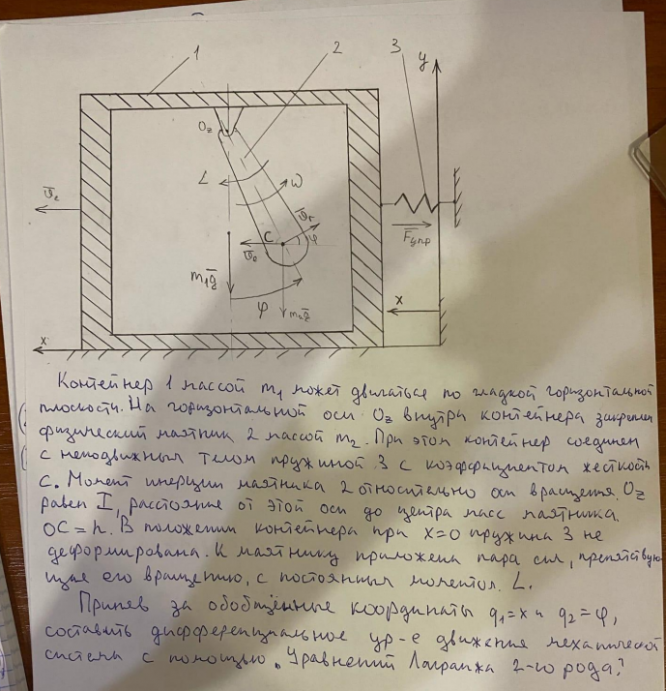 1
2
3
y
O z
L
ω
v̄e
v̄r
C
φ
v̄e
F̄упр
m₁ḡ
φ
m₂ḡ
x
x
Контейнер 1 массой m₁ может двигаться по гладкой горизонтальной
плоскости. На горизонтальной оси Oz внутри контейнера закреплен
физический маятник 2 массой m₂. При этом контейнер соединен
с неподвижным телом пружиной 3 с коэффициентом жесткости
C. Момент инерции маятника 2 относительно оси вращения Oz
равен I, расстояние от этой оси до центра масс маятника
OC = h. В положении контейнера при x=0 пружина 3 не
деформирована. К маятнику приложена пара сил, препятствую-
щие его вращению, с постоянным моментом L.
Приняв за обобщённые координаты q₁=x и q₂=φ,
составить дифференциальное ур-е движения механической
системы с помощью Уравнений Лагранжа 2-го рода?